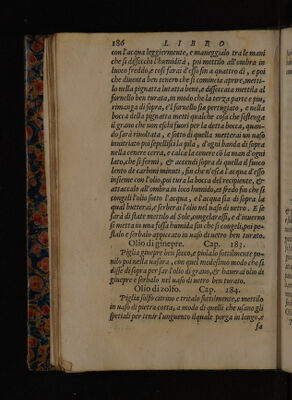 186 LIBRO
con l'acqua leggiermente, e maneggialo tra le mani
che si disecchi l'humidità, poi mettilo all'ombra in
luoco freddo, e cosi farai d'esso fin a quattro dì, e poi
che diuenta ben tenero che si comincia aprire, metti-
lo nella pignatta lutatta bene, & dissecata mettila al
fornello ben turata, in modo che la terza parte e piu,
rimanga di sopra, e'l fornello sia pertugiato, e nella
bocca della pignatta metti qualche cosa che sostenga
il grano che non eschi fuori per la detta bocca, quan-
do sarà riuoltata, e sotto di quella metterai un uaso
inuitriato poi sepellisci la pila, d'ogni banda di sopra
nella cenere cerca, e calca la cenere cō la man d'ogni
lato, che si fermi, & accendi sopra di quella il fuoco
lento de carboni minuti, fin che n'esca l'acqua d'esso
insieme con l'olio, poi tura la bocca del recipiente, &
attaccalo all'ombra in loco humido, et fredo fin che si
congeli l'olio sotto l'acqua, e l'acqua sia di sopra la
qual butterai, e serberai l'olio nel uaso di uetro. E se
sarà di state mettilo al Sole, congelarassi, e d'inuerno
si metta in una fossa humida fin che si congeli, poi pe-
stalo e serbalo appiccato in uaso di uetro ben turato.
Olio di ginepre. Cap. 183.
Piglia ginepre ben secco, e pistalo sottilmente po-
nilo poi nella nasara, con quel medesimo modo che si
disse di sopra per far l'olio di grano, & hauerai olio di
ginepre e serbalo nel uaso di uetro ben turato.
Olio di zolfo. Cap. 184.
Piglia solfo citrino e tritalo sottilmente, e mettilo
in uaso di pietra cotta, a modo di quelli che usano gli
spetiali per tenir l'unguento ilquale porga in longo, e
sa